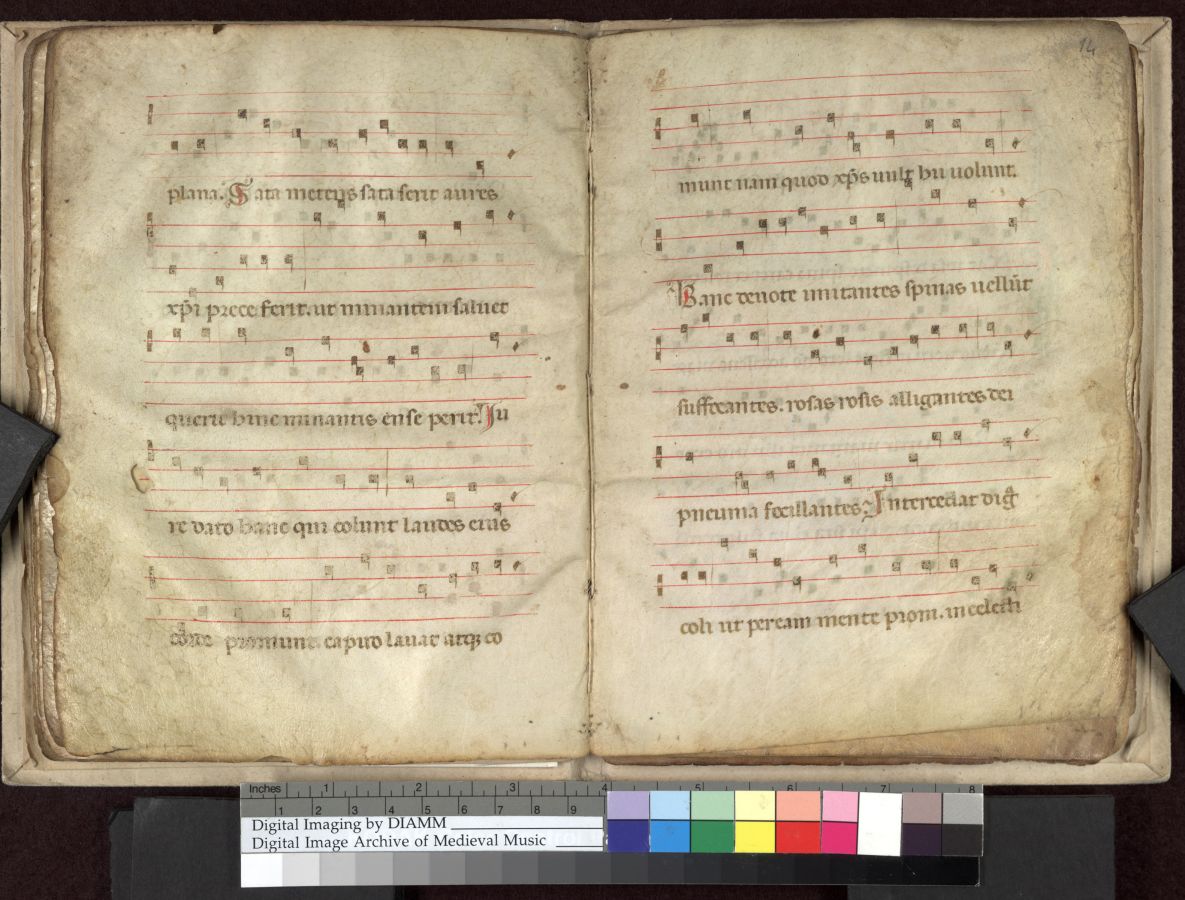 plana. Sata metens sata serit aures
xp̄i prece ferit. ut minantem saluet
querit hinc minantis ense perit. Ju
re dato hanc qui colunt laudes eius
promunt. caput lauat atqꝫ co
14
munt nam quod xp̄s uult hii uolunt.
Hanc deuote imitantes spinas uellūt
suffocantes. rosas rosis alligantes dei
pneuma focillantes. Intercedat
coli ut peream mente proni. in celesti
Inches 1 2 3 4 5 6 7 8
1 2 3 4 5 6 7 8 9
Digital Imaging by DIAMM
Digital Image Archive of Medieval Music